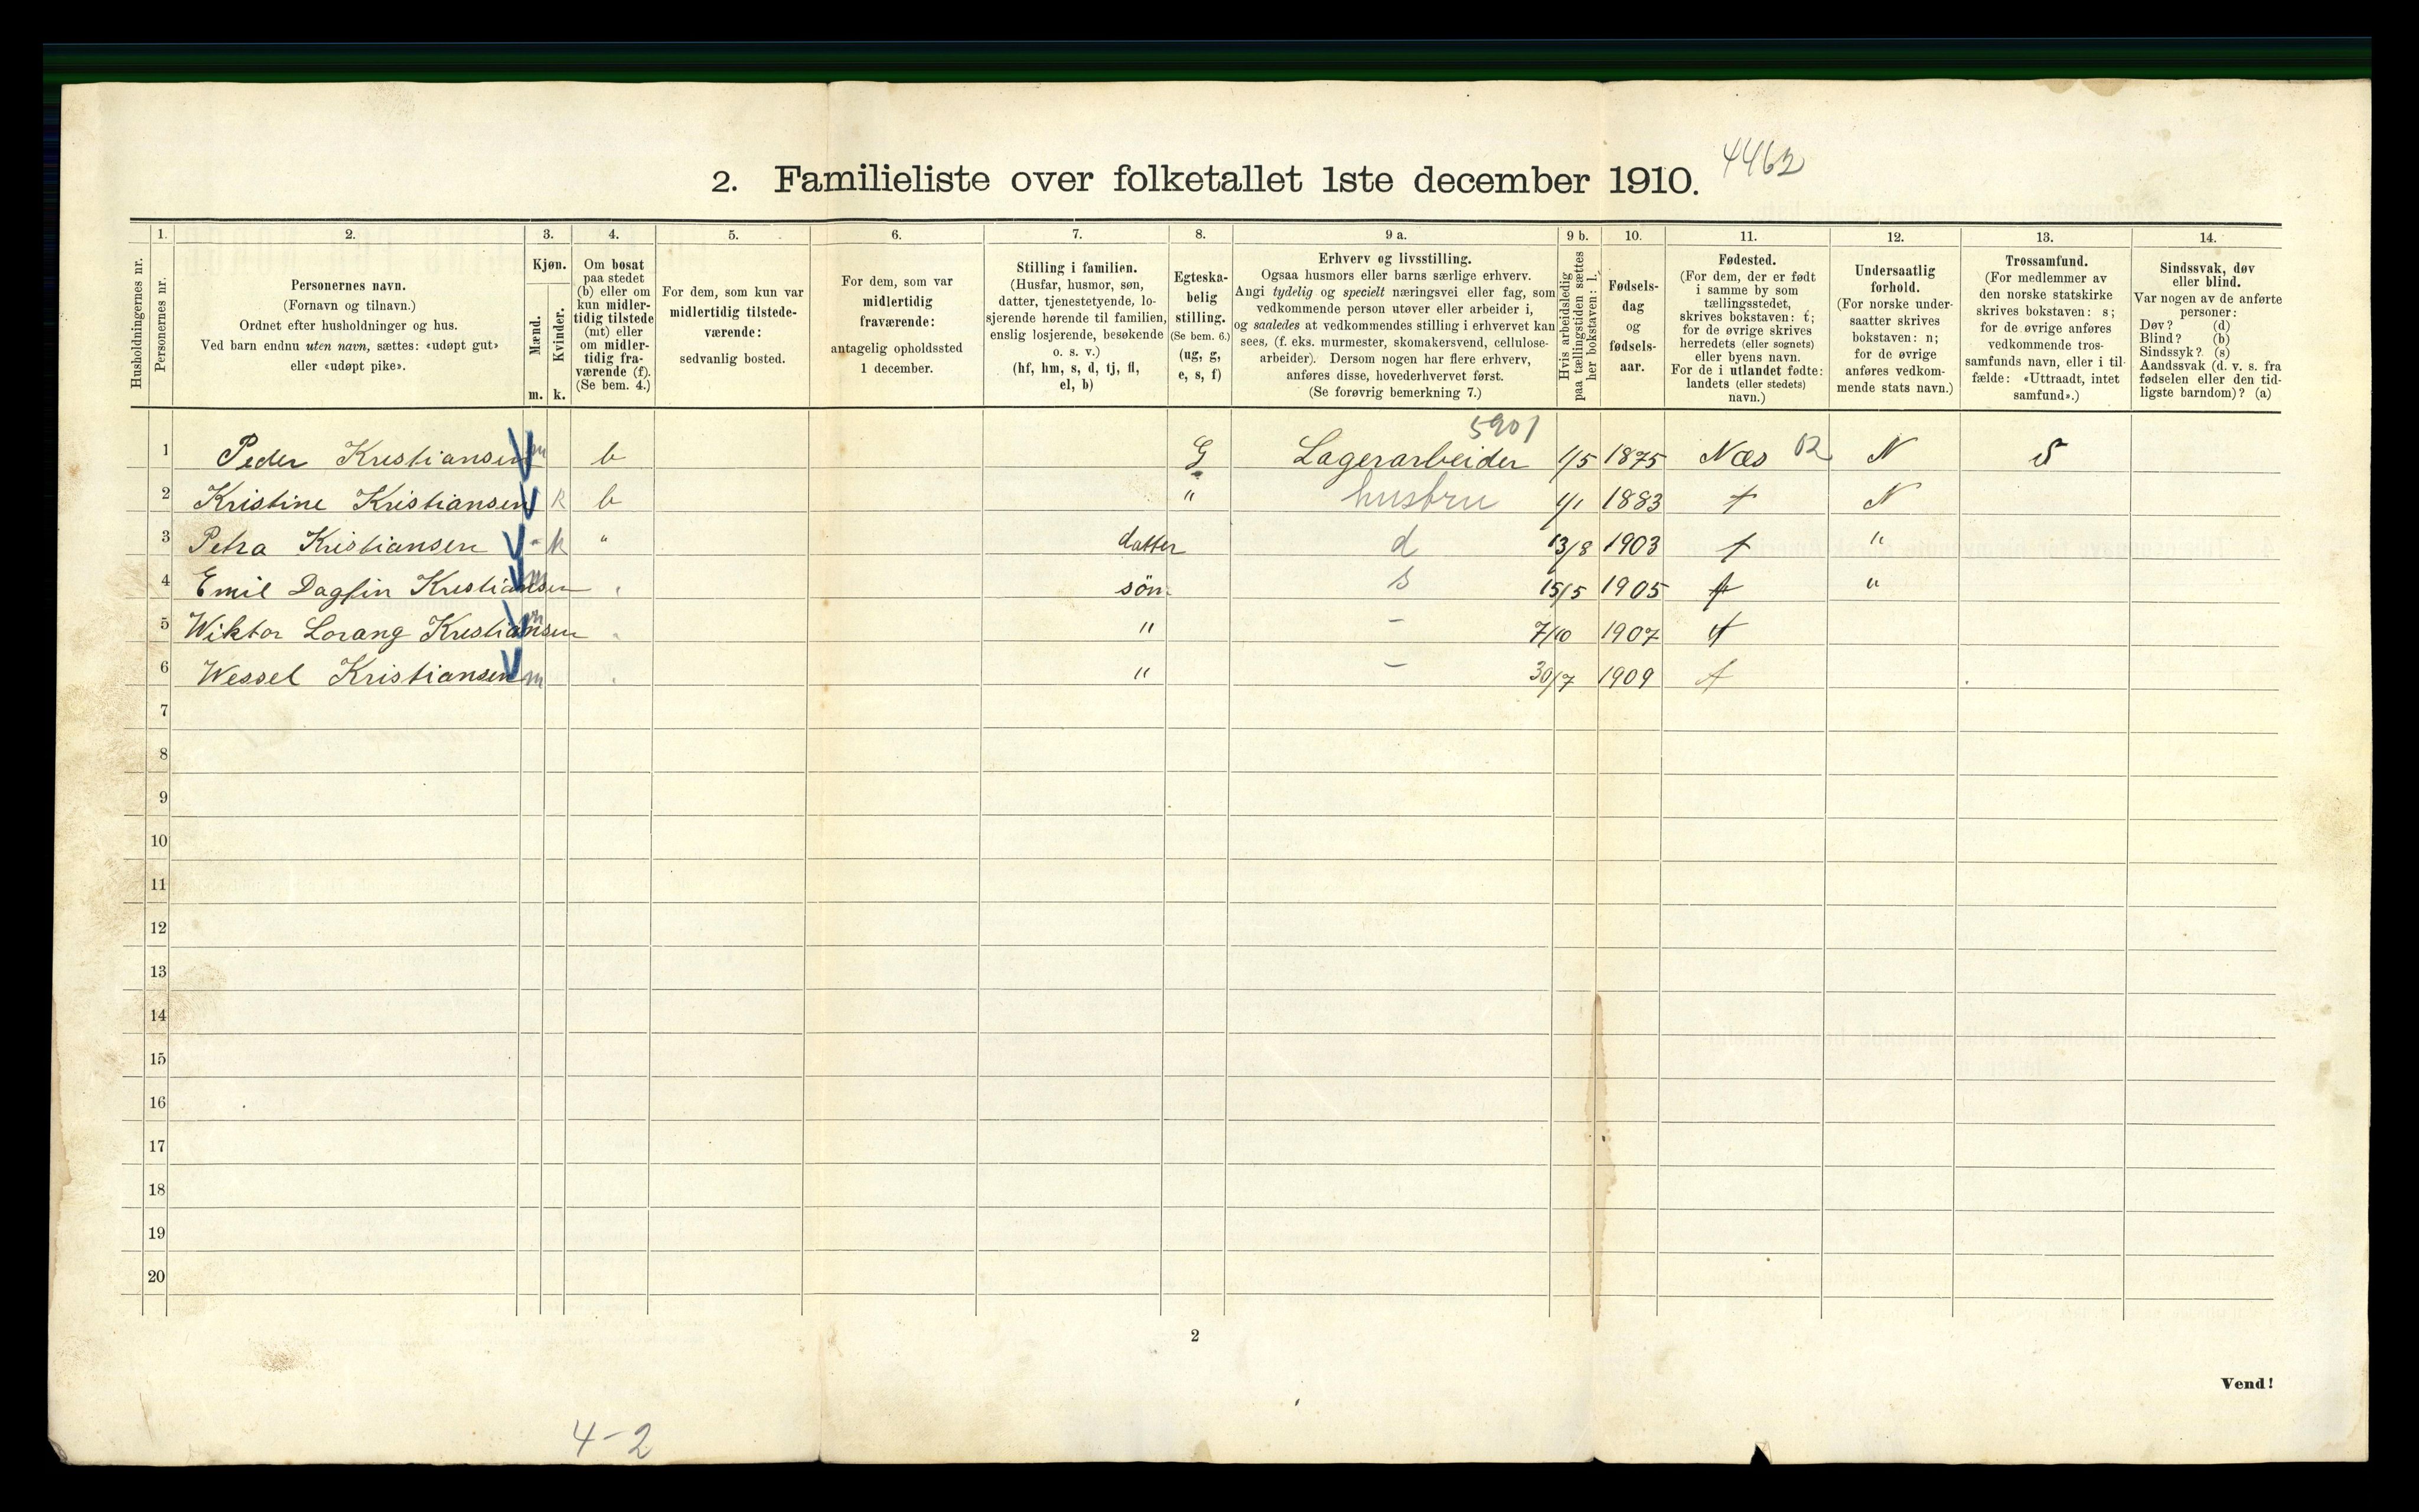 4462
2. Familieliste over folketallet 1ste december 1910.
Husholdningernes nr.
1.
Personernes nr.
2.
Personernes navn.
(Fornavn og tilnavn.)
Ordnet efter husholdninger og hus.
Ved barn endnu uten navn, sættes: «udøpt gut»
eller «udøpt pike».
3.
Kjøn.
Mænd.
Kvinder.
m. k.
4.
Om bosat
paa stedet
(b) eller om
kun midler-
tidig tilstede
(mt) eller
om midler-
tidig fra-
værende (f).
(Se bem. 4.)
5.
For dem, som kun var
midlertidig tilstede-
værende:
sedvanlig bosted.
6.
For dem, som var
midlertidig
fraværende:
antagelig opholdssted
1 december.
7.
Stilling i familien.
(Husfar, husmor, søn,
datter, tjenestetyende, lo-
sjerende hørende til familien,
enslig losjerende, besøkende
o. s. v.)
(hf, hm, s, d, tj, fl,
el, b)
8.
Egteska-
belig
stilling.
(Se bem. 6.)
(ug, g,
e, s, f)
9 a.
Erhverv og livsstilling.
Ogsaa husmors eller barns særlige erhverv.
Angi tydelig og specielt næringsvei eller fag, som
vedkommende person utøver eller arbeider i,
og saaledes at vedkommendes stilling i erhvervet kan
sees, (f. eks. murmester, skomakersvend, cellulose-
arbeider). Dersom nogen har flere erhverv,
anføres disse, hovederhvervet først.
(Se forøvrig bemerkning 7.)
9 b.
Hvis arbeidsledig
paa tællingstiden sættes
her bokstaven: l.
10.
Fødsels-
dag
og
fødsels-
aar.
11.
Fødested.
(For dem, der er født
i samme by som
tællingsstedet,
skrives bokstaven: t;
for de øvrige skrives
herredets (eller sognets)
eller byens navn.
For de i utlandet fødte:
landets (eller stedets)
navn.)
12.
Undersaatlig
forhold.
(For norske under-
saatter skrives
bokstaven: n;
for de øvrige
anføres vedkom-
mende stats navn.)
13.
Trossamfund.
(For medlemmer av
den norske statskirke
skrives bokstaven: s;
for de øvrige anføres
vedkommende tros-
samfunds navn, eller i til-
fælde: «Uttraadt, intet
samfund».)
14.
Sindssvak, døv
eller blind.
Var nogen av de anførte
personer:
Døv? (d)
Blind? (b)
Sindssyk? (s)
Aandssvak (d. v. s. fra
fødselen eller den tid-
ligste barndom)? (a)
5901
1 Peder Kristiansen m b G Lagerarbeider 1/5 1875 Næs 02 N S
2 Kristine Kristiansen k b " husbru 1/1 1883 t N
3 Petra Kristiansen - k " datter d 13/8 1903 t "
4 Emil Dagfin Kristiansen m . søn s 15/5 1905 t "
5 Wiktor Lorang Kristiansen m . " - 7/10 1907 t
6 Wessel Kristiansen m . " - 30/7 1909 t
7
8
9
10
11
12
13
14
15
16
17
18
19
20
2
Vend!
4-2